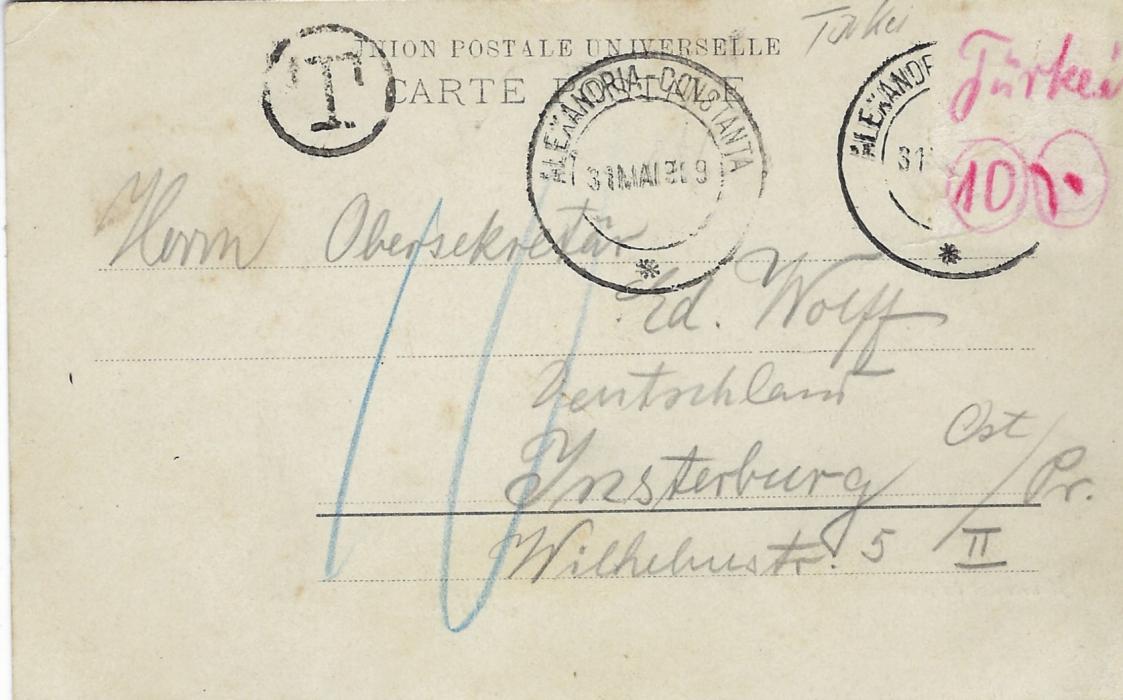 Türkei
UNION POSTALE UNIVERSELLE
CARTE POSTALE
T
ALEXANDRIA-CONSTANTA
31 MAI
*
ALEXANDR
31
*
Türkei
10
Herrn Obersekretär
Ed. Wolff
Deutschland
Insterburg Ost/Pr.
Wilhelmstr. 5 II
10